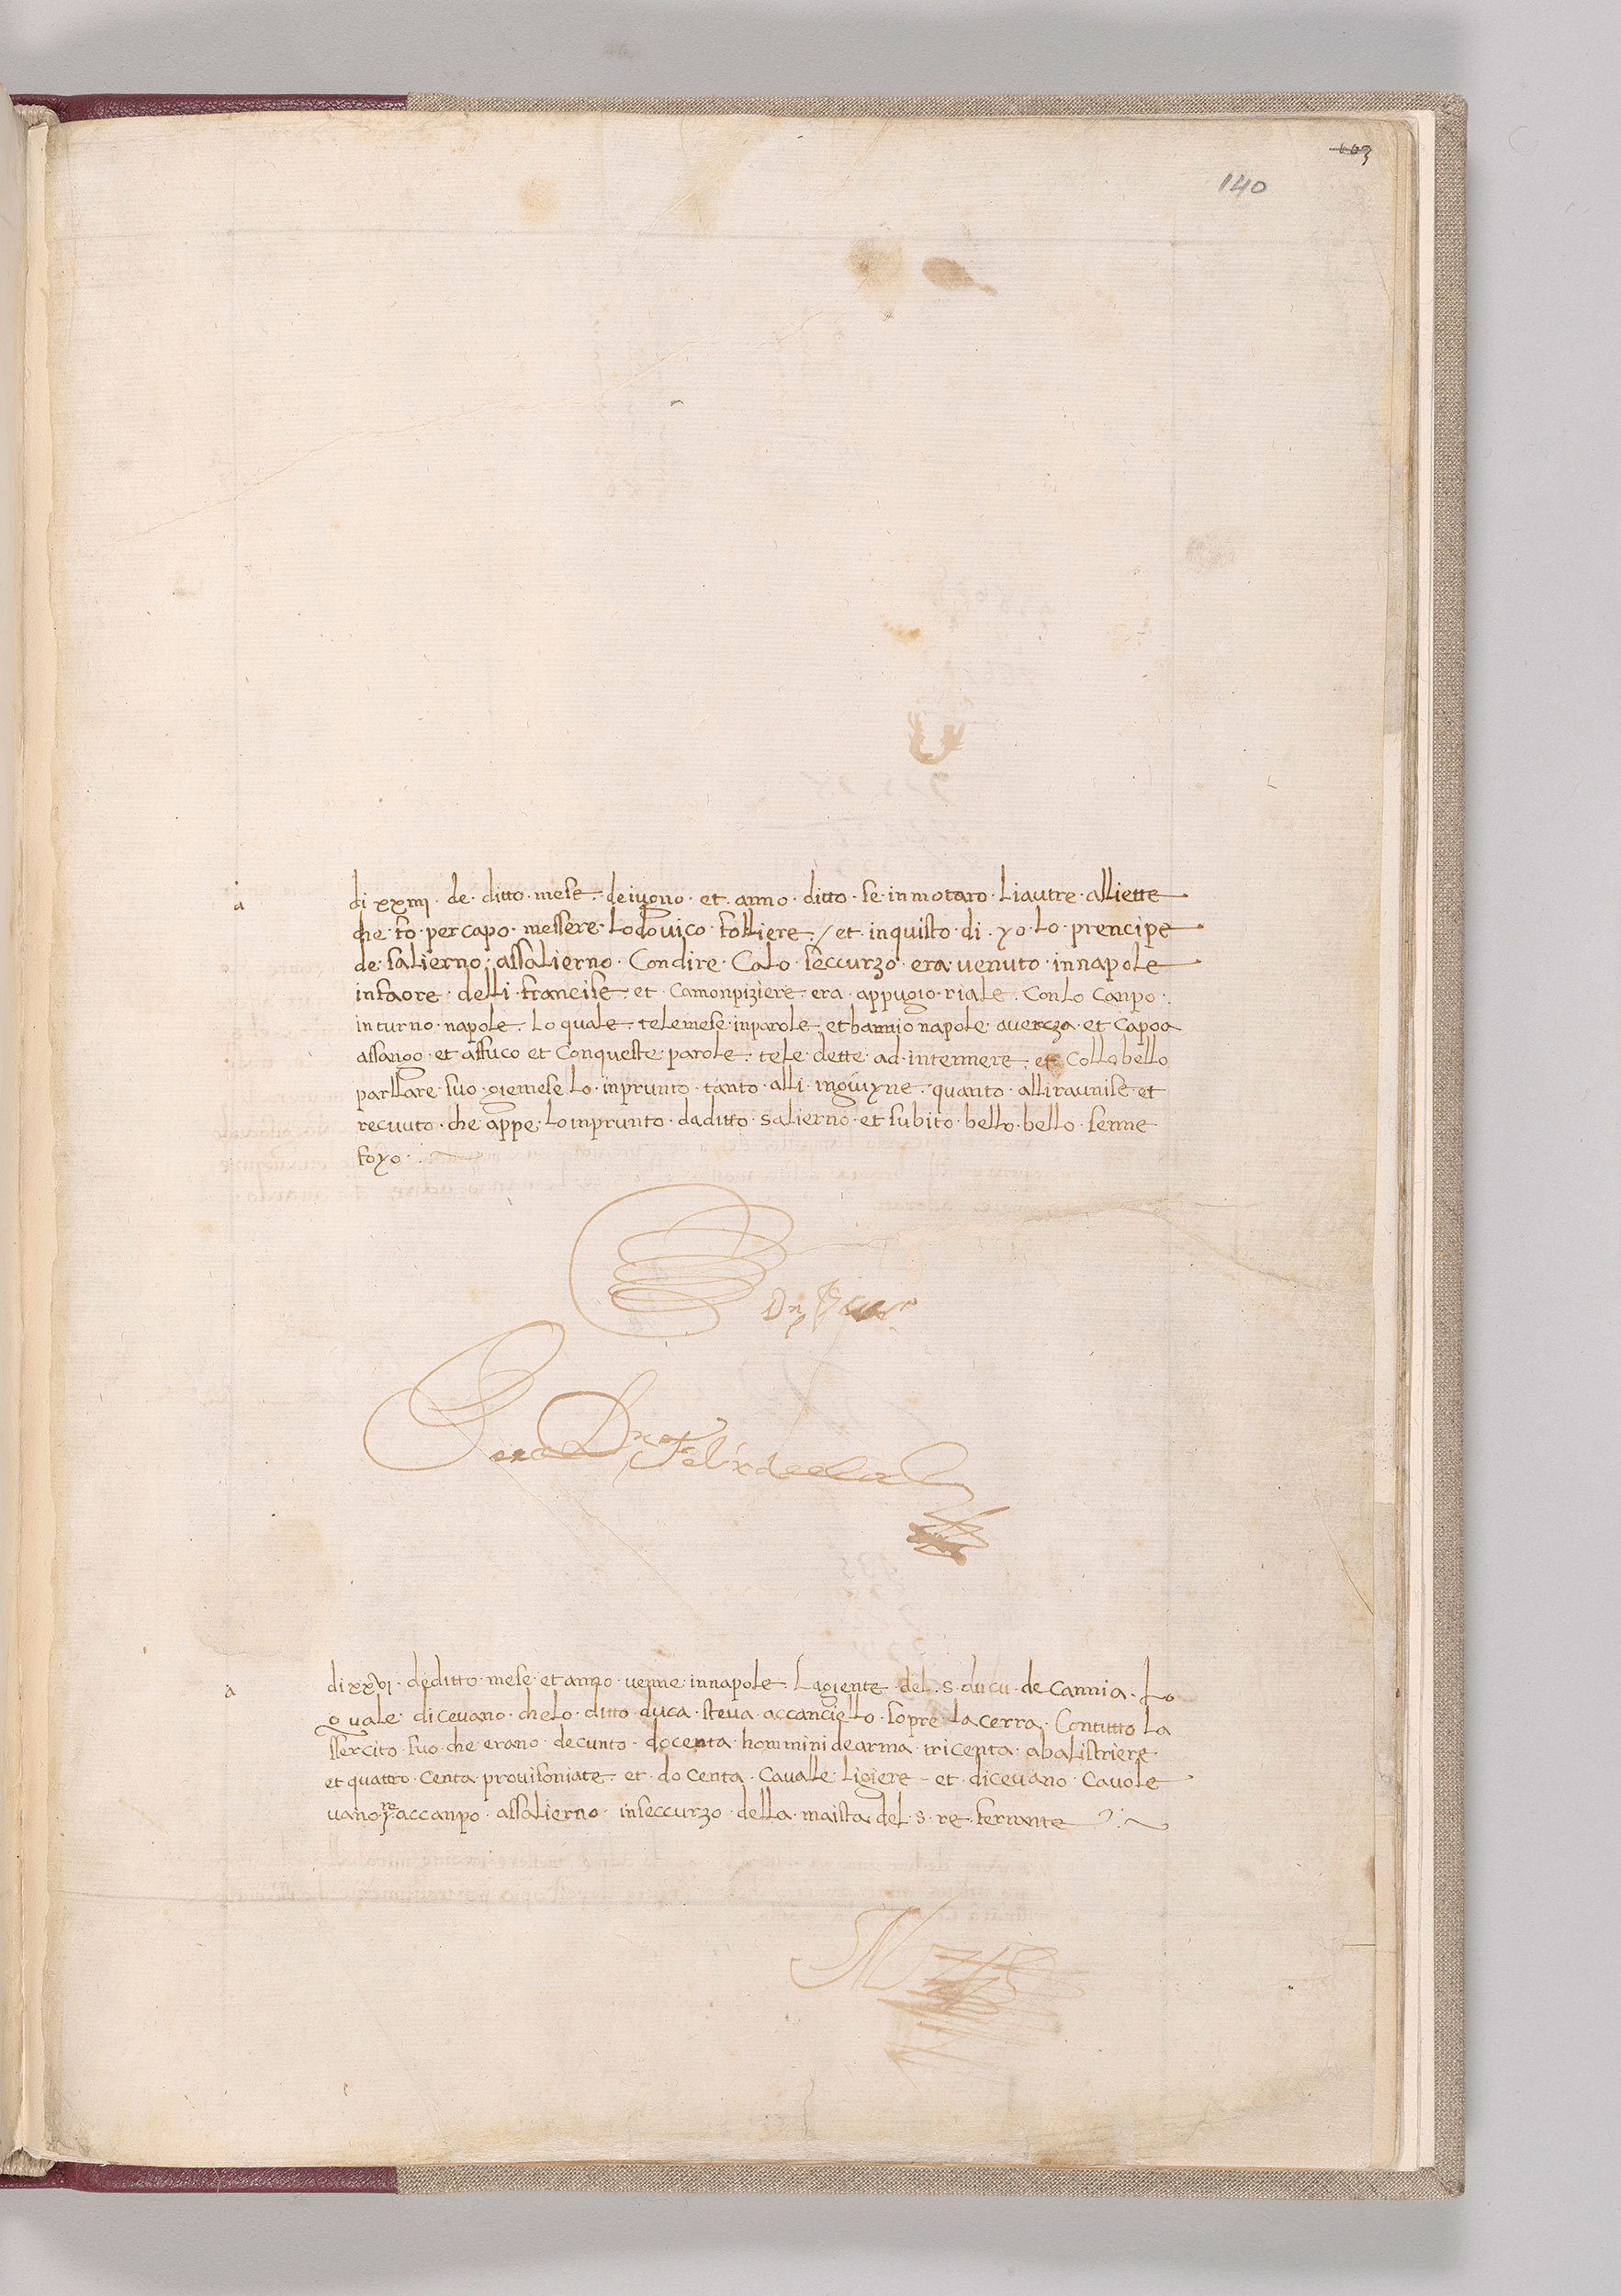 140
a di xxiiii · de · ditto · mese · de iugno · et · anno · ditto · se · in motaro · Li autre · alliette
che · fo · per capo · messere · Lodovico · folliere / et · in quisto · di · yo · lo · prencipe
de · salierno · assalierno · Con dire · Ca lo · seccurzo · era · venuto · in napole
in faore · delli · francise · et · Camonpiziere · era · appugio · riale · Con lo Canpo ·
in turno · napole · Lo quale · tele mese · in parole · et bannio napole · averza · et Capoa
assango · et affuco et Con queste · parole · tele · dette · ad · intennere · et Collo bello
parllare · suo · giemese Lo · inprunto · tanto · alli · ingiuyne · quanto · alli raunise · et
recuuto · che appe · lo inprunto · da ditto · salierno · et subito · bello · bello · senne
foyo ·
a di xxvi · de ditto · mese · et anno · venne in napole · La giente · del · s · duca · de Cannia · Lo
quale · dicevano · che lo · ditto · duca · steva · accanciello · sopre · La cerra · Con tutto La
ssercito · suo · che erano · de cunto · docenta · hommini de arma · tricenta · abalistriere
et quattro · Centa provisoniate · et · do centa · Cavalle · ligiere · et · dicevano · Ca vole
vano · accanpo · assalierno · in seccurzo · della · maista · del · s · re · ferrante